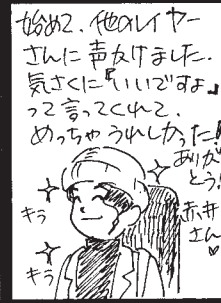 始めて、他のレイヤー
さんに声かけました。
気さくに『いいですよ』
って言ってくれて、
めっちゃうれしかった!
ありが
とう!
赤井
さん♡
キラ
キラ